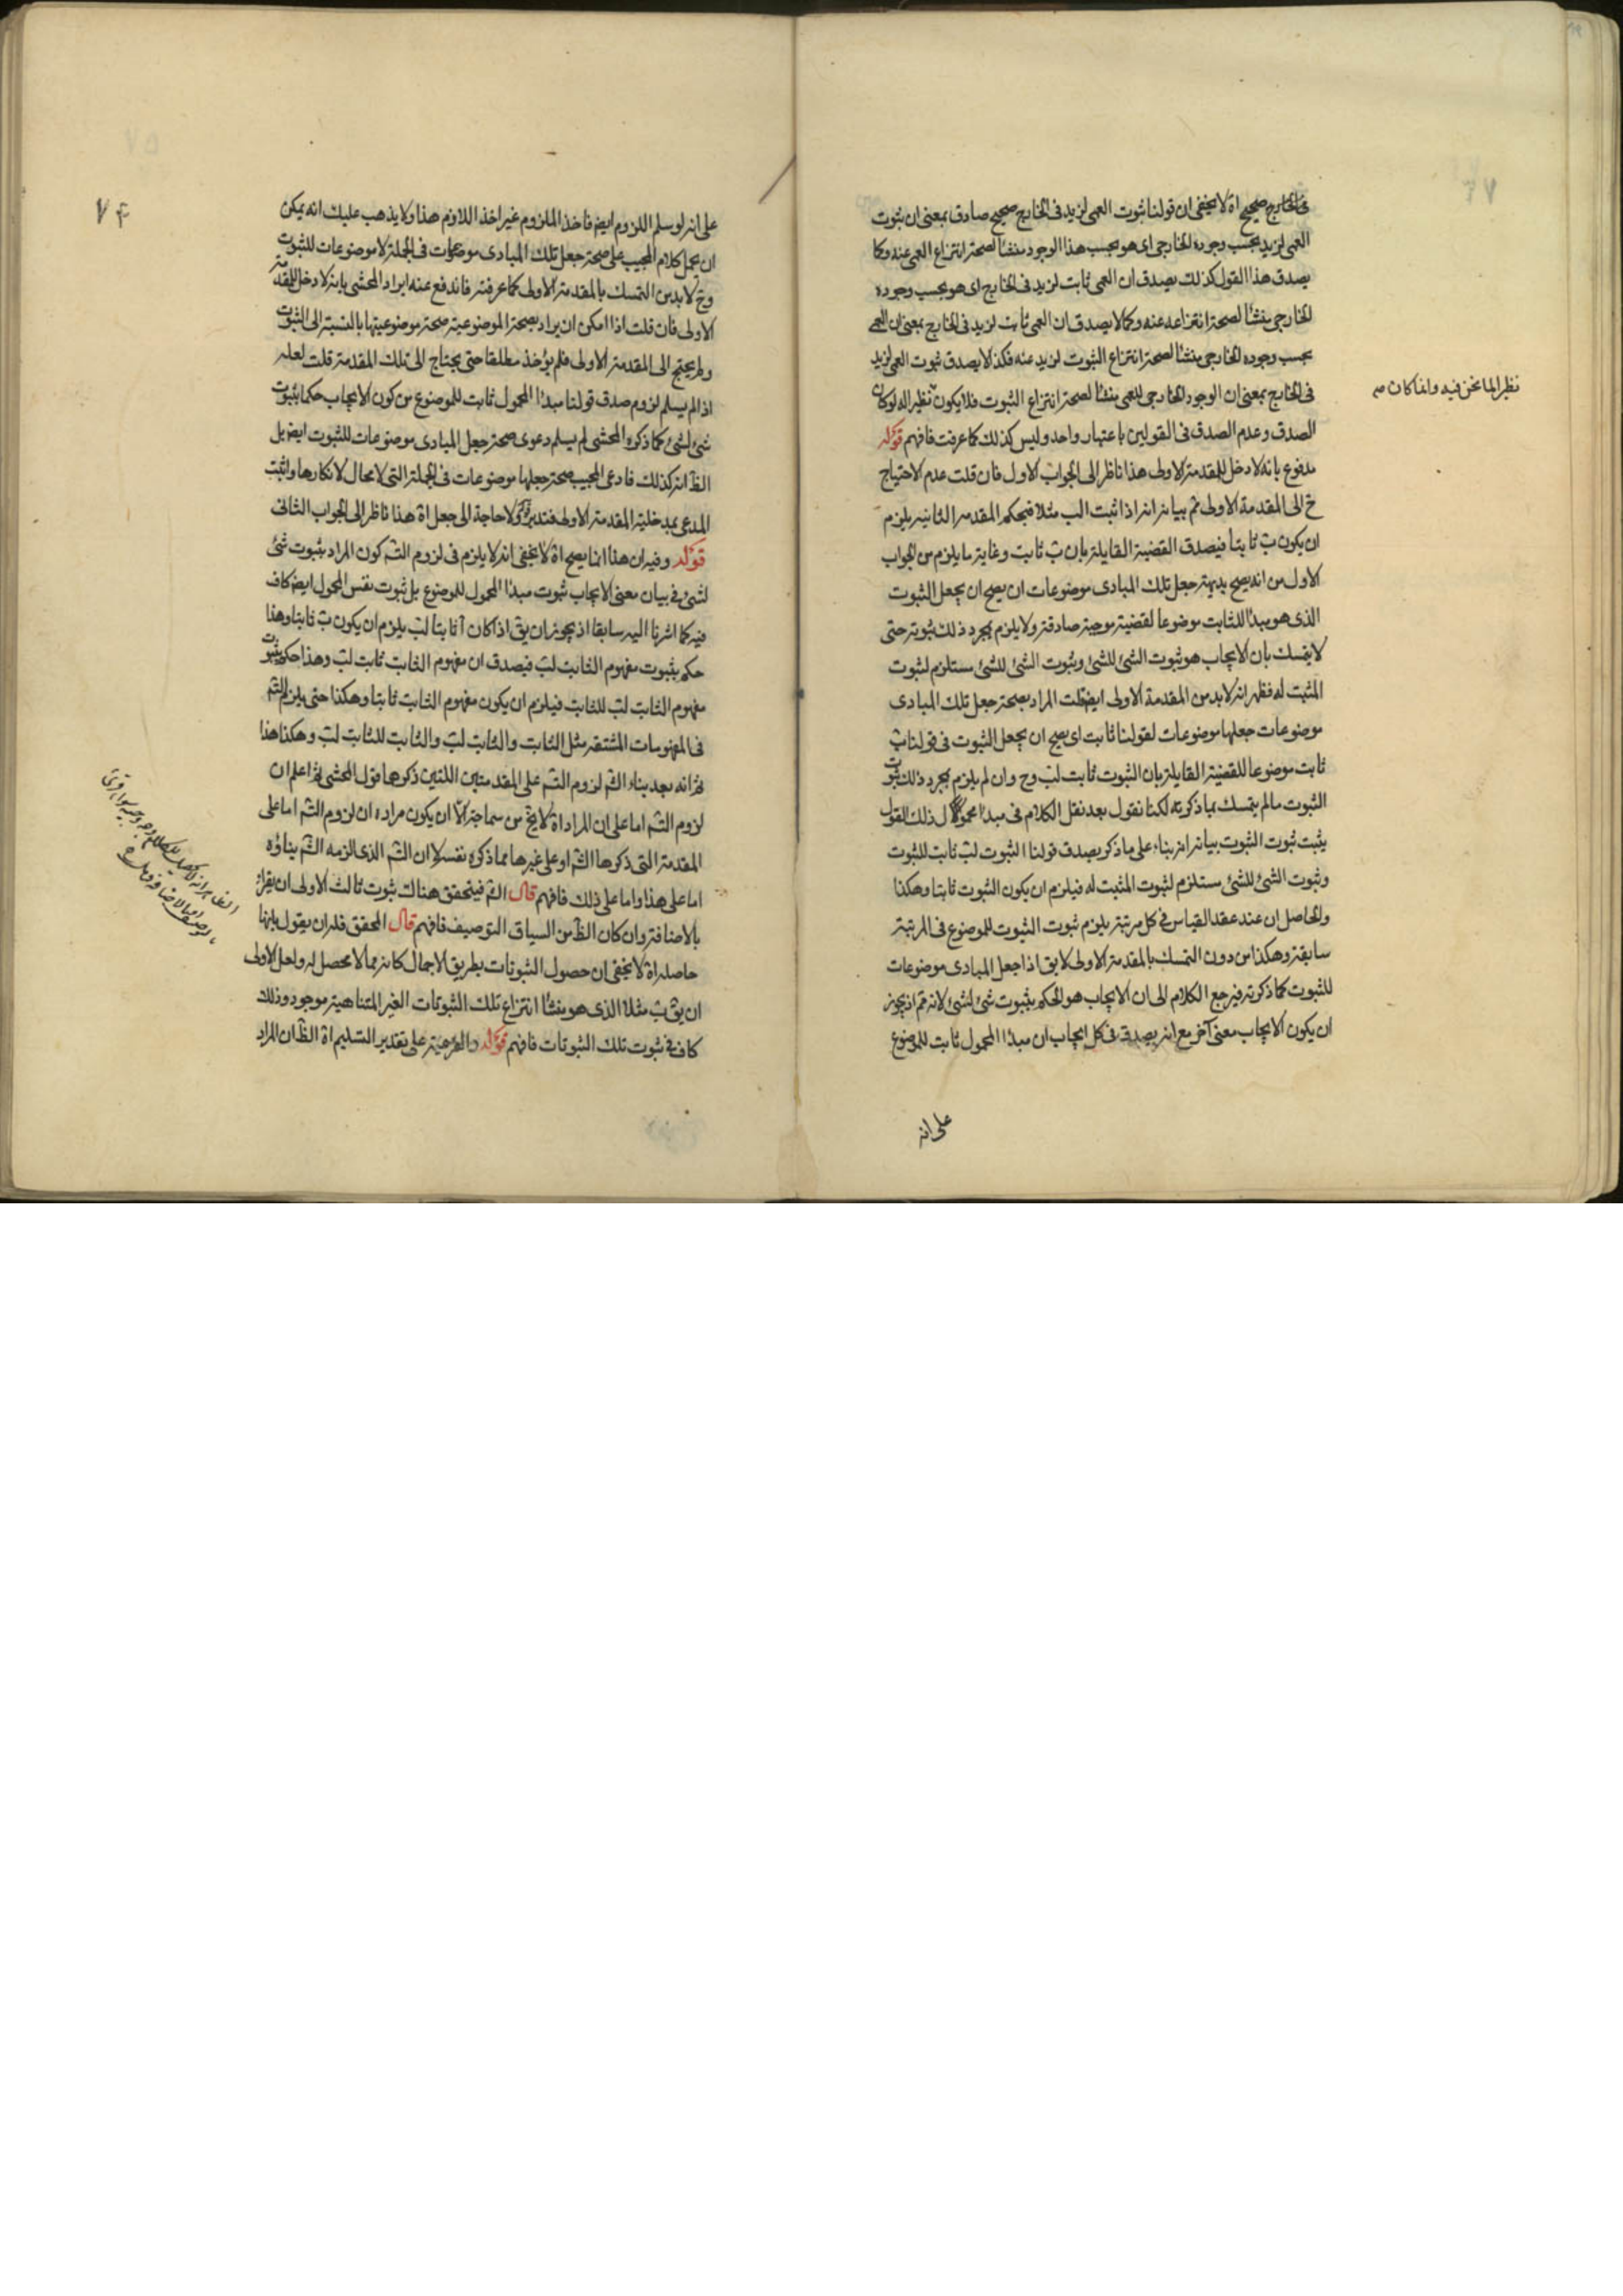 فى الخارج صحيح اه لا يخفى ان قولنا ثبوت العمى لزيد فى الخارج صحيح صادق بمعنى ان ثبوت
العمى لزيد بحسب وجوده الخارجى اى هو بحسب هذا الوجود منشأ لصحة انتزاع العمى عنه وكما
يصدق هذا القول كذلك يصدق ان العمى ثابت لزيد فى الخارج اى هو بحسب وجوده
الخارجى منشأ لصحة انتزاعه عنه وكما لا يصدق ان العمى ثابت لزيد فى الخارج بمعنى ان العمى
بحسب وجوده الخارجى منشأ لصحة انتزاع الثبوت لزيد عنه فكذا لا يصدق ثبوت العمى لزيد
فى الخارج بمعنى ان الوجود الخارجى للعمى منشأ لصحة انتزاع الثبوت فلا يكون نظير اله لو كان
نظيرا لما نحن فيه وانما كان صح
الصدق وعدم الصدق فى القولين باعتبار واحد وليس كذلك كما عرفت فافهم قوله
مدفوع بانه لا دخل للمقدمة الاولى هذا ناظر الى الجواب الاول فان قلت عدم الاحتياج
ح الى المقدمة الاولى ثم بيانه انه اذا ثبت الب مثلا فبحكم المقدمه الثانيه يلزم
ان يكون ب ثابتا فيصدق القضية القايلة بان ب ثابت وغاية ما يلزم من الجواب
الاول من انه يصح بديهة جعل تلك المبادى موضوعات ان يصح ان يجعل الثبوت
الذى هو مبدأ للثابت موضوعا لقضية موجبة صادقة ولا يلزم بمجرد ذلك ثبوته حتى
لا يتمسك بان الايجاب هو ثبوت الشئ للشئ وثبوت الشئ للشئ مستلزم لثبوت
المثبت له فظهر انه لا بد من المقدمة الاولى ايضا قلت المراد بصحة جعل تلك المبادى
موضوعات جعلها موضوعات لقولنا ثابت اى يصح ان يجعل الثبوت فى قولنا ب
ثابت موضوعا للقضية القايلة بان الثبوت ثابت لب وح وان لم يلزم بمجرد ذلك ثبوت
الثبوت ما لم يتمسك بما ذكرته لكنا نقول بعد نقل الكلام فى مبدأ محمول ذلك القول
يثبت ثبوت الثبوت بيانه انه بناء على ما ذكر يصدق قولنا الثبوت لب ثابت للثبوت
وثبوت الشئ للشئ مستلزم لثبوت المثبت له فيلزم ان يكون الثبوت ثابتا وهكذا
والحاصل ان عند عقد القياس فى كل مرتبة يلزم ثبوت الثبوت للموضوع فى المرتبة
سابقة وهكذا من دون التمسك بالمقدمة الاولى لا يق اذا جعل المبادى موضوعات
للثبوت كما ذكرته فيرجع الكلام الى ان الايجاب هو الحكم بثبوت شئ لشئ لانه ثم اذ يجوز
ان يكون الايجاب معنى آخر مع انه يصدق فى كل ايجاب ان مبدأ المحمول ثابت للموضوع
على انه
٧٤
على انه لو سلم اللزوم ايضا فاخذ الملزوم غير اخذ اللازم هذا ولا يذهب عليك انه يمكن
ان يحمل كلام المجيب على صحة جعل تلك المبادى موضوعات فى الجملة لا موضوعات للثبوت
وح لا بد من التمسك بالمقدمة الاولى كما عرفته فاندفع عنه ايراد المحشى بانه لا دخل للمقدمة
الاولى فان قلت اذا امكن ان يراد بصحة الموضوعية صحة موضوعيتها بالنسبة الى الثبوت
ولم يحتج الى المقدمة الاولى فلم يؤخذ مطلقا حتى يحتاج الى تلك المقدمة قلت لعله
اذا لم يسلم لزوم صدق قولنا مبدأ المحمول ثابت للموضوع من كون الايجاب حكما بثبوت
شئ لشئ كما ذكره المحشى لم يسلم دعوى صحة جعل المبادى موضوعات للثبوت ايضا بل
الظ انه كذلك فادعى المجيب صحة جعلها موضوعات فى الجملة التى لا مجال لانكارها واثبت
المدعى بمدخلية المقدمة الاولى فتدبر قوله ولا حاجة الى جعل اه هذا ناظر الى الجواب الثانى
قوله وفيه ان هذا انما يصح اه لا يخفى انه لا يلزم فى لزوم التسَ كون المراد بثبوت شئ
لشئ فى بيان معنى الايجاب ثبوت مبدأ المحمول للموضوع بل ثبوت نفس المحمول ايضا كاف
فيه كما اشرنا اليه سابقا اذ يجوز ان يق اذا كان آ ثابتا لب يلزم ان يكون ب ثابتا وهذا
حكم بثبوت مفهوم الثابت لب فيصدق ان مفهوم الثابت ثابت لب وهذا حكم بثبوت
مفهوم الثابت لب للثابت فيلزم ان يكون مفهوم الثابت ثابتا وهكذا حتى يلزم التسَ
فى المفهومات المشتقة مثل الثابت والثابت لب والثابت للثابت لب وهكذا هذا
ثم انه بعد بناء الشَ لزوم التسَ على المقدمتين اللتين ذكرهما قول المحشى ثم اعلم ان
لزوم التسَ اما على ان المراد اه لا يخ من سماجة الّا ان يكون مراده ان لزوم التسَ اما على
المقدمة التى ذكرها الشَ او على غيرها مما ذكره نفسه لا ان التسَ الذى الزمه الشَ بناؤه
اما على هذا واما على ذلك فافهم قال الشَ فيتحقق هناك ثبوت ثالث الاولى ان يقرأ
بالاضافة وان كان الظ من السياق التوصيف فافهم قال المحقق فله ان يقول بانها
حاصله اه لا يخفى ان حصول الثبوتات بطريق الاجمال كانه مما لا محصل له ولعل الاولى
ان يق ب مثلا الذى هو منشأ انتزاع تلك الثبوتات الغير المتناهية موجود وذلك
كاف فى ثبوت تلك الثبوتات فافهم قوله والفرضية على تقدير التسليم اه الظ ان المراد